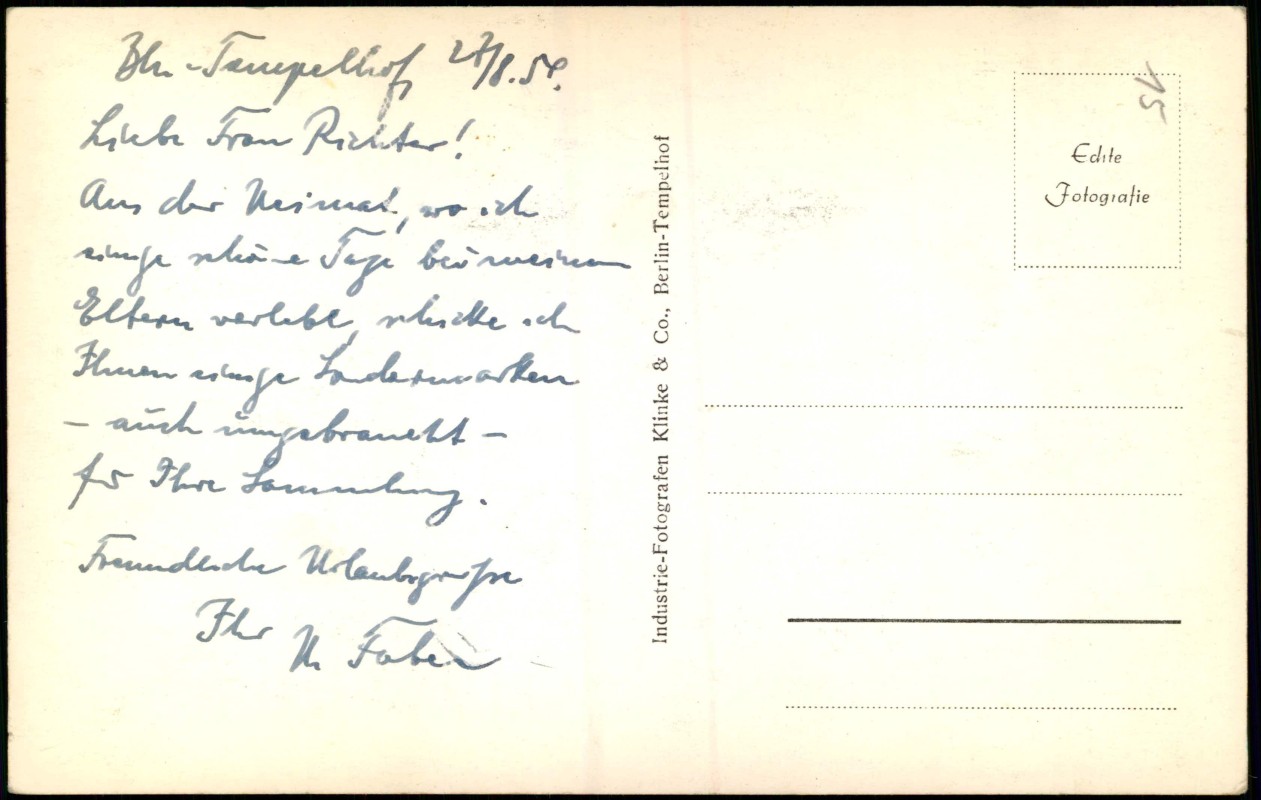 Bln-Tempelhof, 27/8.54.
Liebe Frau Richter!
Aus der Heimat, wo ich
einige schöne Tage bei meinen
Eltern verlebe, schicke ich
Ihnen einige Sondermarken
– auch ungebraucht –
für Ihre Sammlung.
Freundliche Urlaubsgrüße
Ihr H. Faber
Industrie-Fotografen Klinke & Co., Berlin-Tempelhof
15
Echte
Fotografie